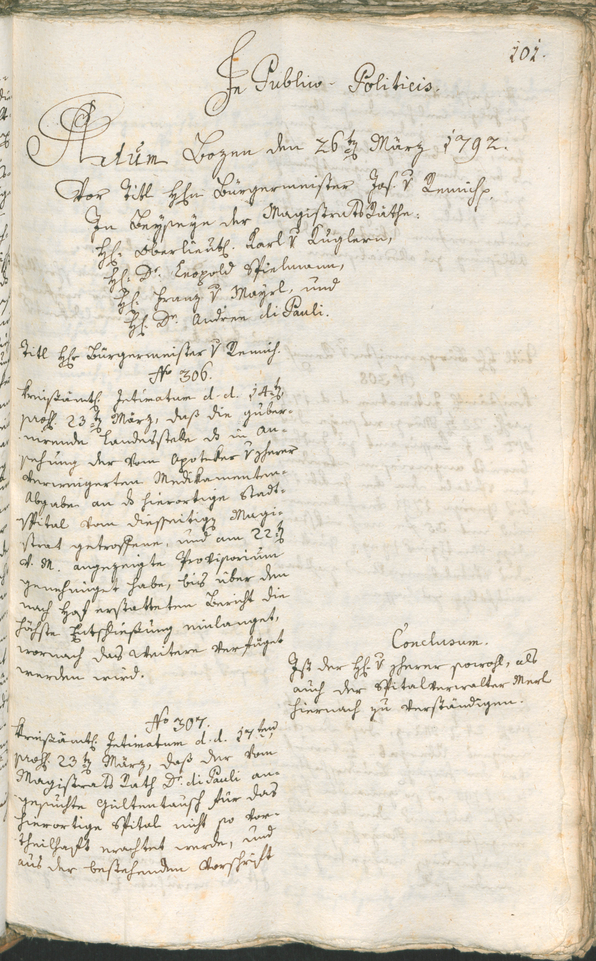 101.
In Publico-Politicis.
Actum Bozen den 26ten März 1792.
Vor Titl Hhn Bürgermeister Jos. v Remich,
In Beyseyn der Magistrats Räthe:
Hh. Oberlieut. Karl v Kuglern,
Hh. Dr. Leopold Spielmann,
Hh. Franz v Mayrl, und
Hh. Dr. Andree di Pauli.
Titl Hh Bürgermeister v Remich.
No 306.
Kreisämtl. Intimatum d. d. 14ten
präs. 23ten März, daß die guber-
nirende Landesstelle das in An-
sehung der vom Apoteker v
verweigerten Medikamenten-
Abgabe an das hierortige Stadt-
spital vom diesseitigen Magi-
strat getroffene, und am 22ten
v. M. angezeigte Provisorium
genehmiget habe, bis über den
nach Hof erstatteten Bericht die
höchste Entschließung einlanget,
wornach das Weitere verfüget
werden wird.
Conclusum.
Ist der Hh. v sowohl, als
auch der Spitalverwalter Merl
hiernach zu verständigen.
No 307.
Kreisämtl. Intimatum d. d. 17ten,
präs. 23ten März, daß der vom
Magistrats Rath Dr. di Pauli an-
gesuchte Gültentausch für das
hierortige Spital nicht so vor-
theilhaft erachtet werde, und
aus der bestehenden Vorschrift